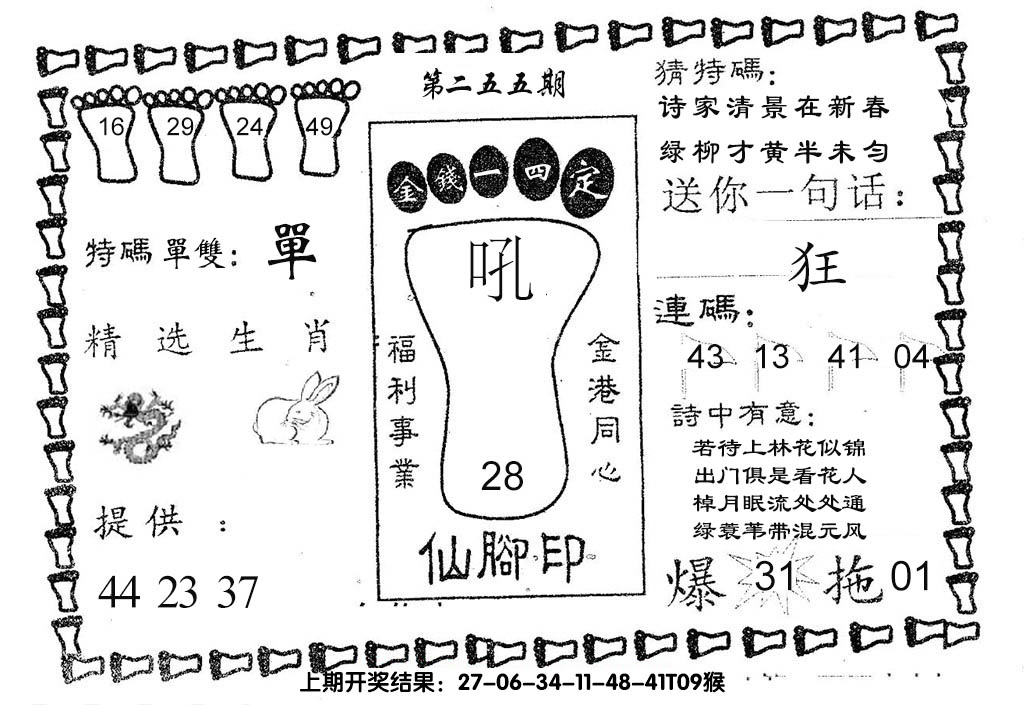 第二五五期
16 29 24 49
特碼單雙：單
精选生肖
提供：
44 23 37
金錢一四定
吼
福利事業
金港同心
28
仙腳印
猜特碼：
诗家清景在新春
绿柳才黄半未匀
送你一句话：
狂
連碼：
43 13 41 04
詩中有意：
若待上林花似锦
出门俱是看花人
棹月眠流处处通
绿蓑苇带混元风
爆 31 拖 01
上期开奖结果：27-06-34-11-48-41T09猴